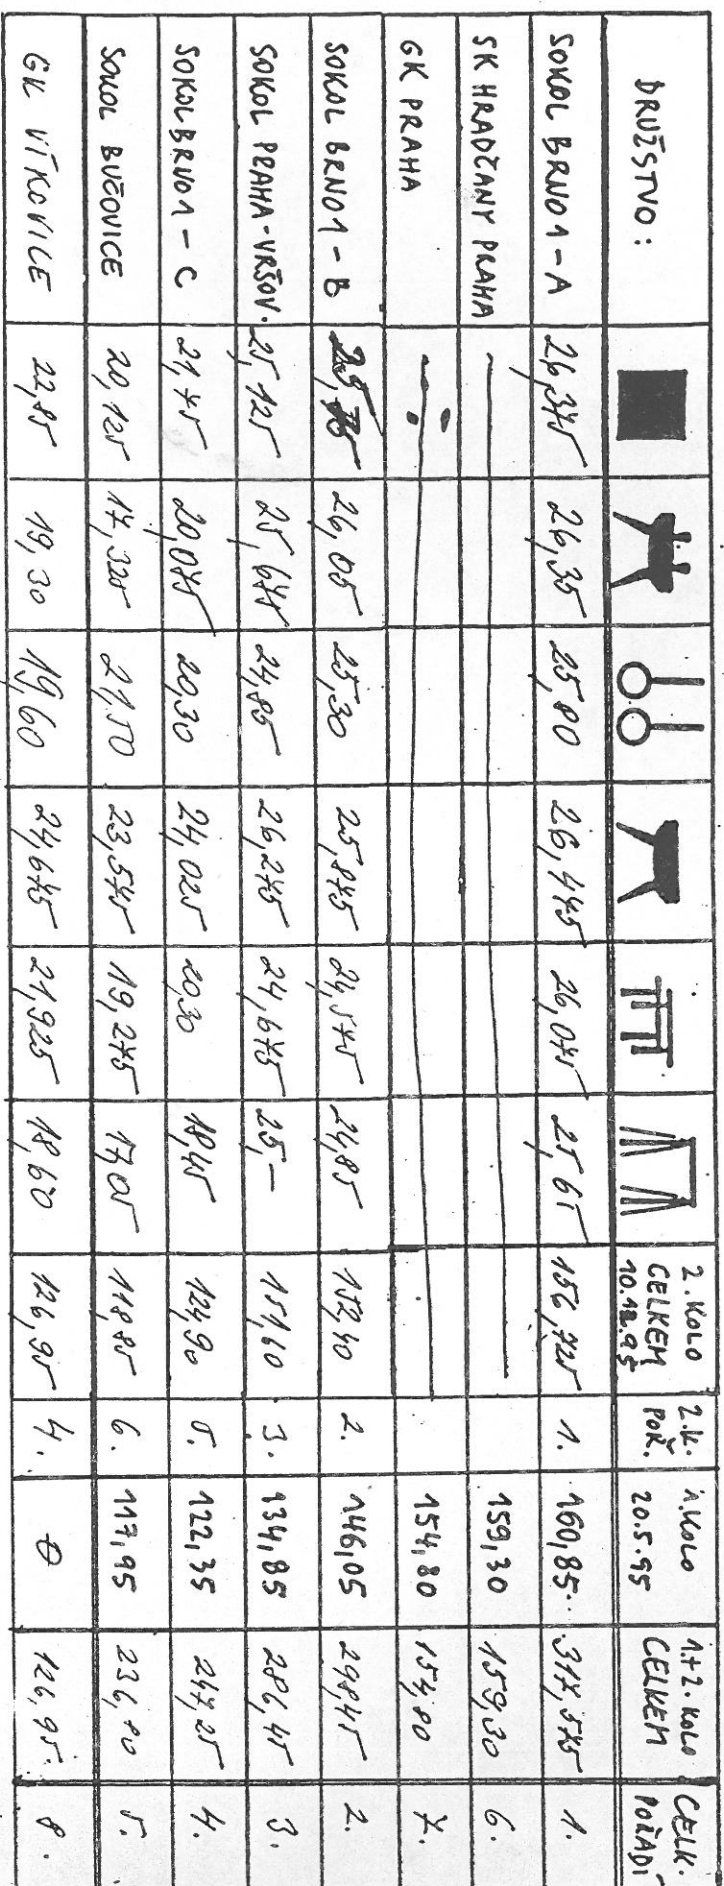 DRUŽSTVO: 2. KOLO CELKEM 10.12.95 2.K. POŘ. 1. KOLO 20.5.95 1.+2. KOLO CELKEM CELK. POŘADÍ
SOKOL BRNO 1 - A 26,375 26,35 25,80 26,475 26,075 25,65 156,725 1. 160,85 317,575 1.
SK HRADČANY PRAHA — 159,30 159,30 6.
GK PRAHA — 154,80 154,80 7.
SOKOL BRNO 1 - B 25,75 26,05 25,30 25,875 24,575 24,85 152,40 2. 146,05 298,45 2.
SOKOL PRAHA-VRŠOV. 25,125 25,675 24,85 26,275 24,675 25,- 151,60 3. 134,85 286,45 3.
SOKOL BRNO 1 - C 21,75 20,075 20,30 24,025 20,30 18,45 124,90 5. 122,35 247,25 4.
SOKOL BUČOVICE 20,125 17,325 21,50 23,575 19,275 17,05 118,85 6. 117,95 236,80 5.
GK VÍTKOVICE 22,85 19,30 19,60 24,675 21,925 18,60 126,95 4. 0 126,95 8.